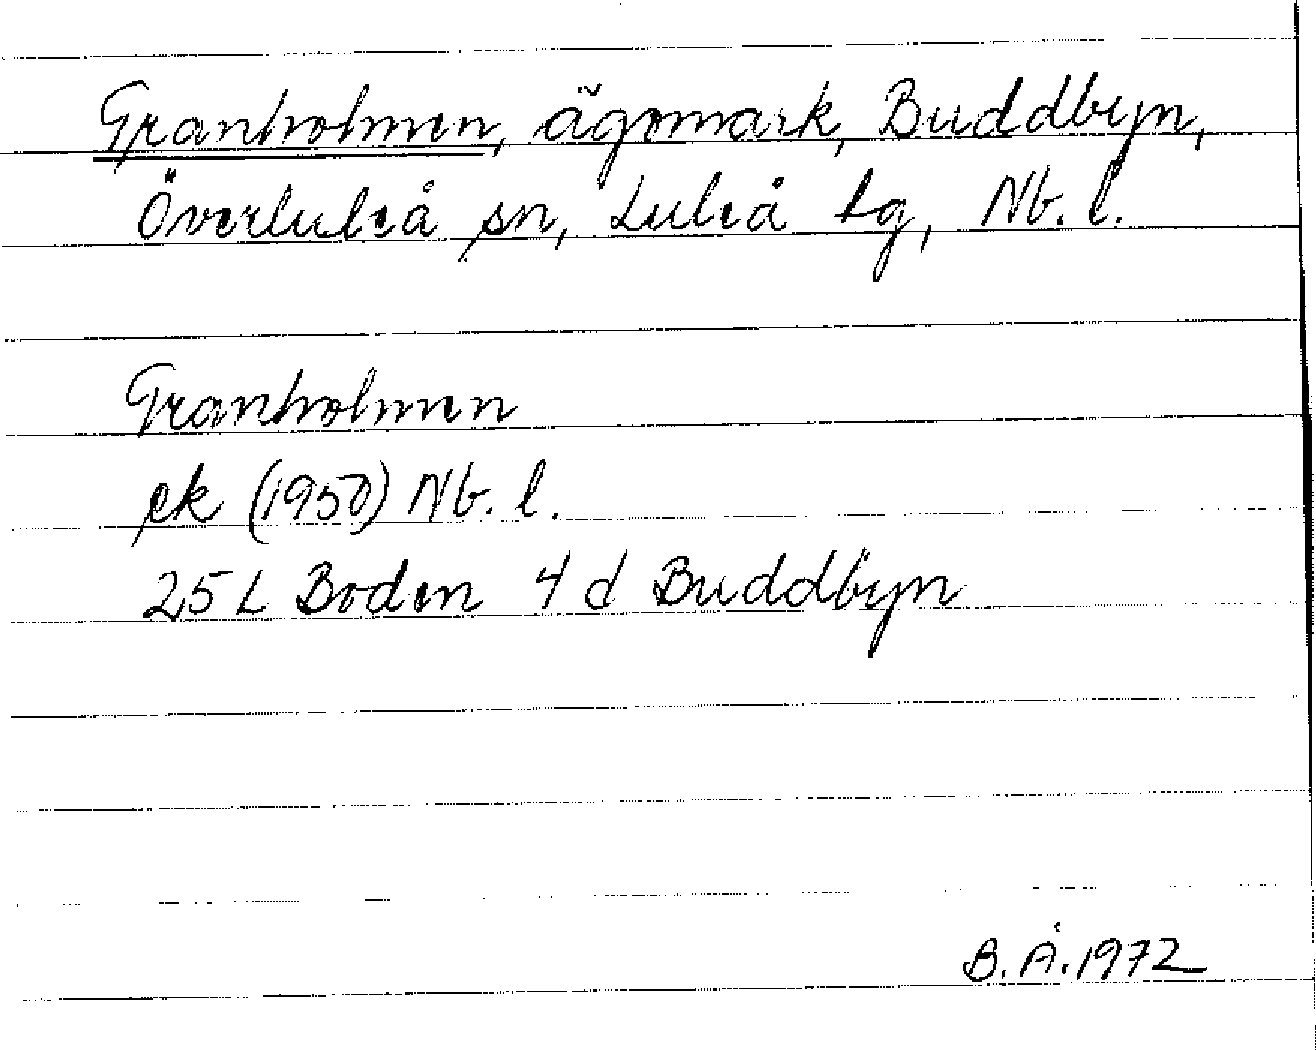 Granholmen, ägomark, Buddbyn,
Överluleå sn, Luleå tg, Nb. l.
Granholmen
ek (1950) Nb. l.
25 L Boden 4 d Buddbyn
B. Å. 1972